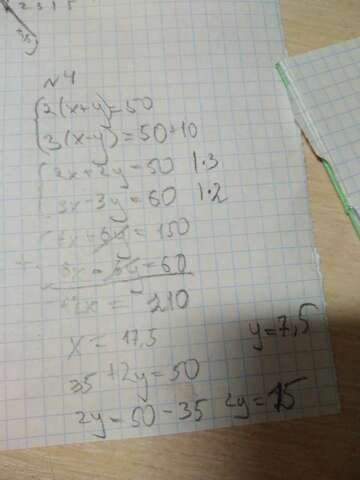 2 3 1 5
№4
2(x+y)=50
3(x-y)=50+10
2x+2y=50 |·3
3x-3y=60 |·2
6x+6y=150
6x-6y=60
12x=210
x=17,5
y=7,5
35+2y=50
2y=50-35 2y=15